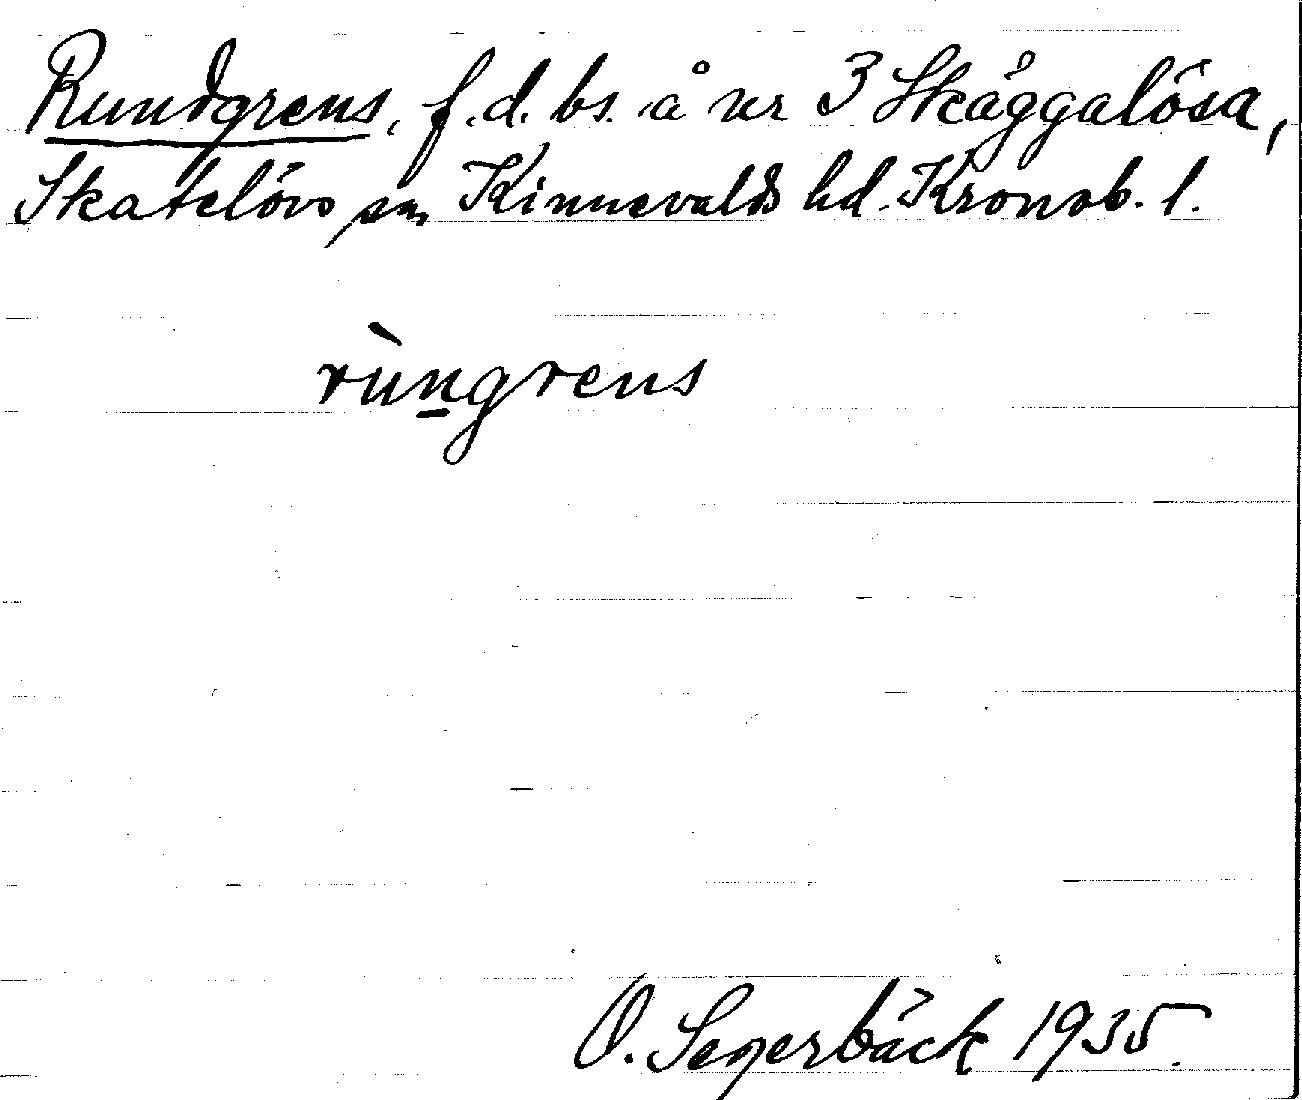 Rundgrens, f.d. bs. å nr 3 Skäggalösa,
Skatelövs sn Kinnevalds hd. Kronob. l.
rùngrens
O. Segerbäck 1935.